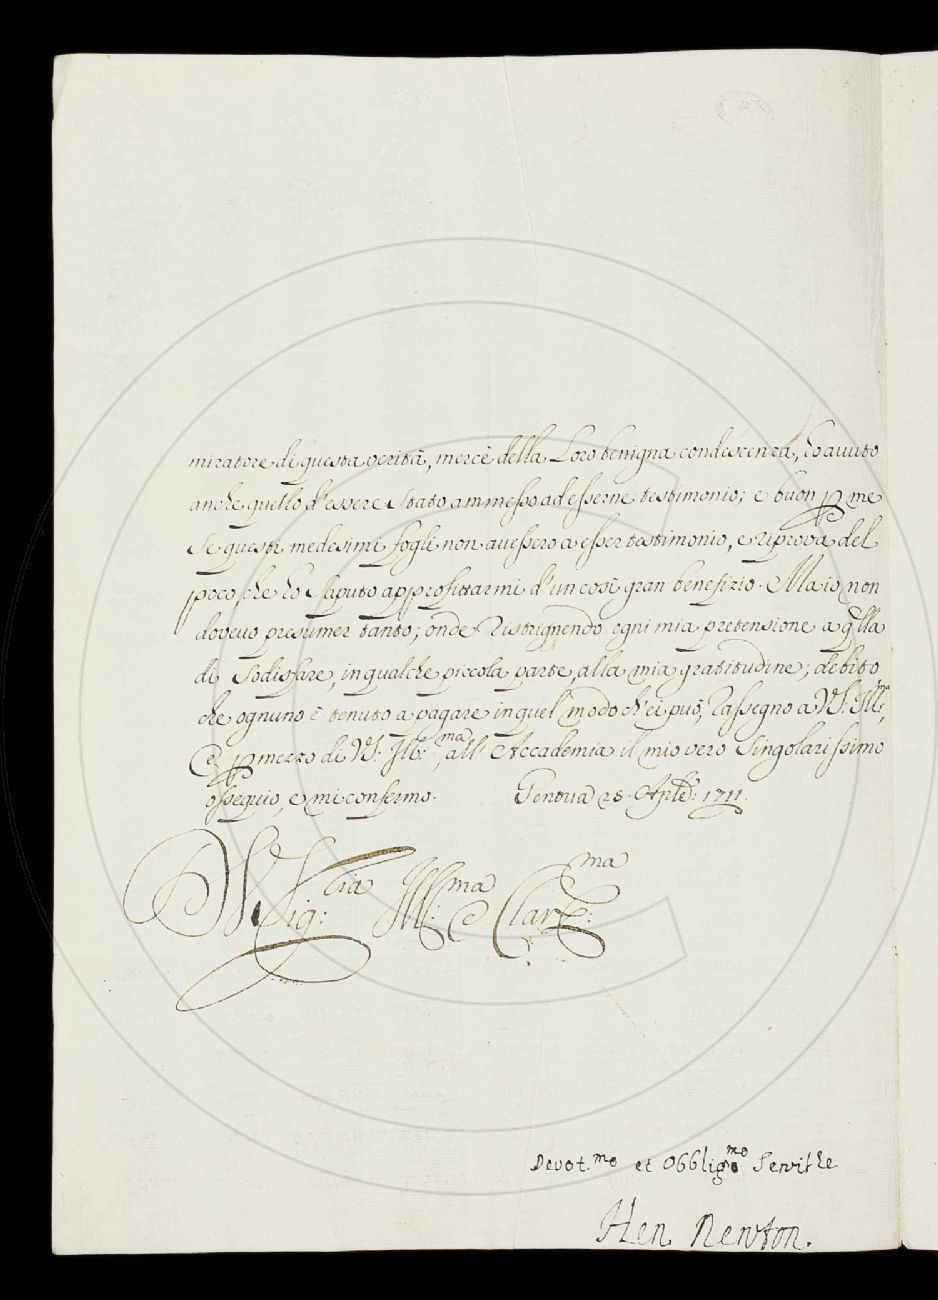 miratore di questa verità, mercè della Loro benigna condescenza, ho auuto
anche quello d'essere stato ammesso ad esserne testimonio; e buon p me
se questi medesimi fogli non auessero a esser testimonio, e riprova del
poco, che ho saputo approfittarmi d'un così gran benefizio. Ma io non
doveuo presumer tanto; onde ristrignendo ogni mia pretensione a qlla
di sodisfare, in qualche piccola parte, alla mia gratitudine; debito
che ognuno è tenuto a pagare in quel modo ch'ei può, rassegno a VS. Ill:ma,
e p mezzo di VS. Ill:ma, all' Accademia il mio vero singolarissimo
ossequio, e mi confermo. Genova 28. Aple: 1711.
Di VS Sig:ria Ill:ma e Clar:ma
Devot.mo et Obblig.mo Servitre
Hen. Newton.